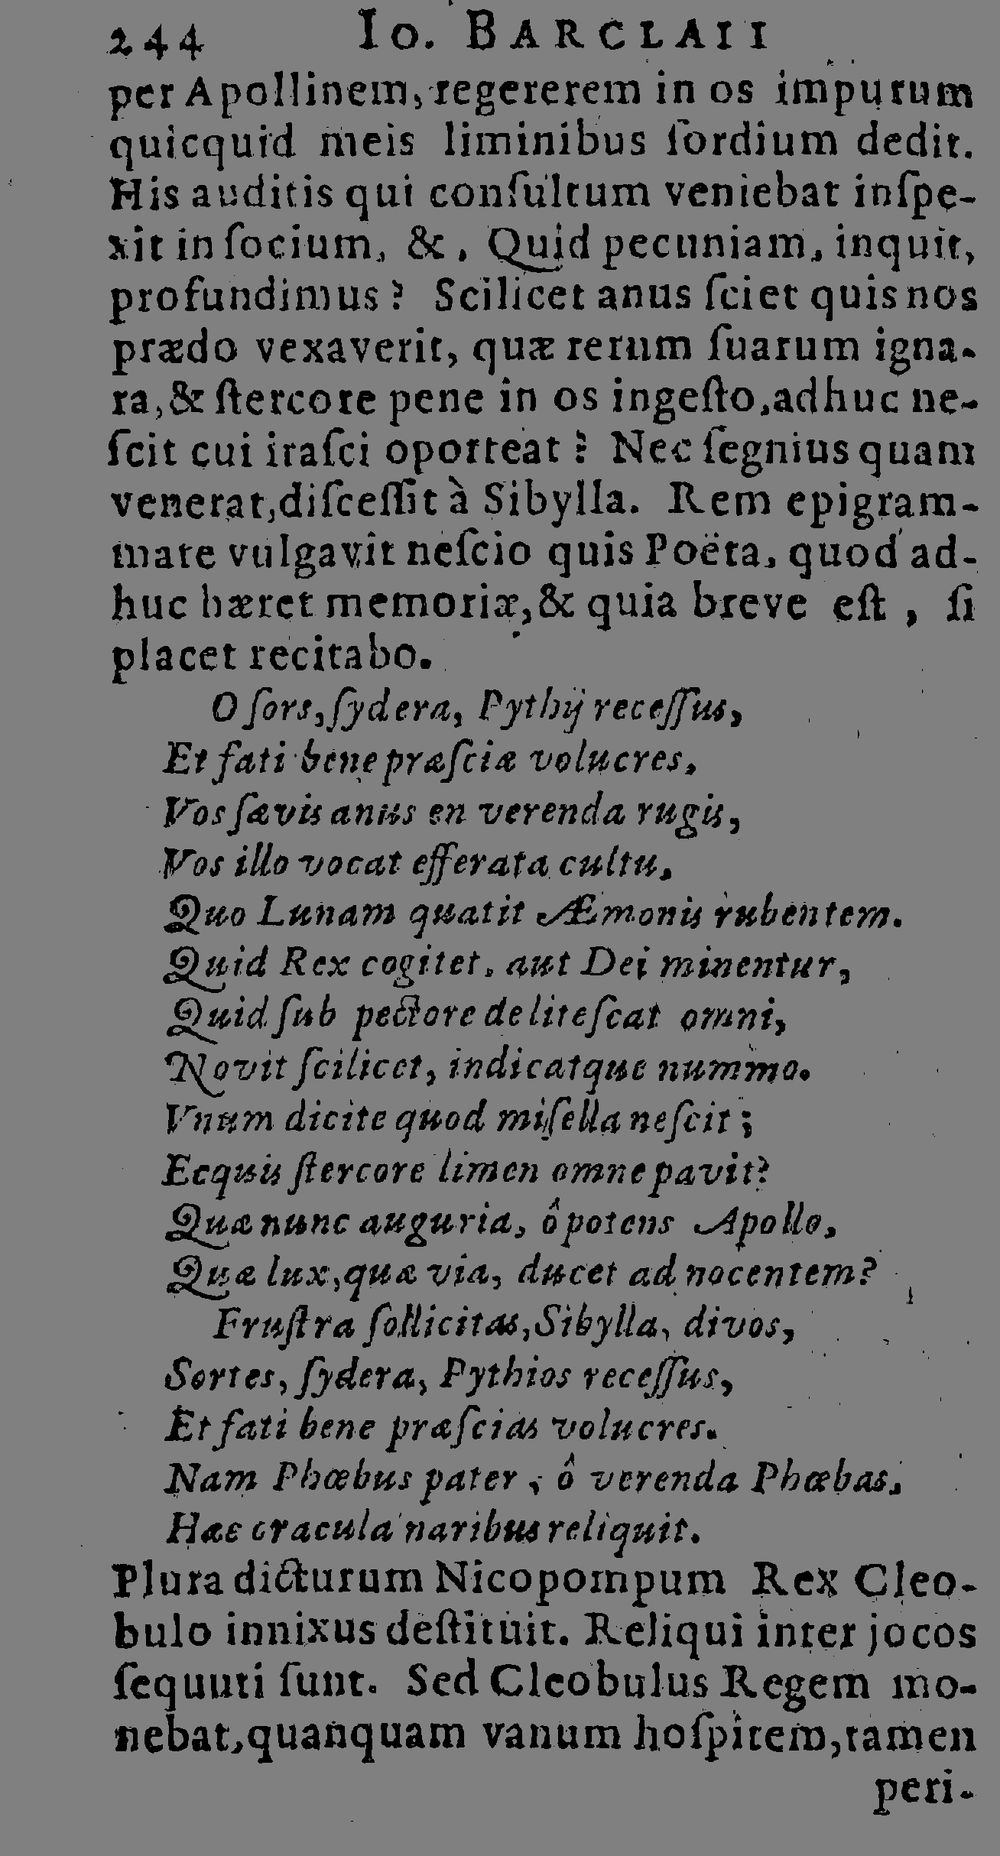 244 Io. BARCLAII
per Apollinem, regererem in os impurum
quicquid meis liminibus ſordium dedit.
His auditis qui conſultum veniebat inſpe-
xit in ſocium, &, Quid pecuniam, inquit,
profundimus? Scilicet anus ſciet quis nos
prædo vexaverit, quæ rerum ſuarum igna-
ra, & ſtercore pene in os ingeſto, adhuc ne-
ſcit cui iraſci oporteat? Nec ſegnius quam
venerat, diſceſſit à Sibylla. Rem epigram-
mate vulgavit neſcio quis Poëta, quod ad-
huc hæret memoriæ, & quia breve eſt, ſi
placet recitabo.
O ſors, ſydera, Pythij receſſus,
Et fati bene præſciæ volucres,
Vos ſævis anus en verenda rugis,
Vos illo vocat efferata cultu,
Quo Lunam quatit Æmonis rubentem.
Quid Rex cogitet, aut Dei minentur,
Quid ſub pectore deliteſcat omni,
Novit ſcilicet, indicatque nummo.
Vnum dicite quod miſella neſcit;
Ecquis ſtercore limen omne pavit?
Quæ nunc auguria, ô potens Apollo,
Quæ lux, quæ via, ducet ad nocentem?
Fruſtra ſollicitas, Sibylla, divos,
Sortes, ſydera, Pythios receſſus,
Et fati bene præſcias volucres.
Nam Phœbus pater, ô verenda Phœbas,
Hæc oracula naribus reliquit.
Plura dicturum Nicopompum Rex Cleo-
bulo innixus deſtituit. Reliqui inter jocos
ſequuti ſunt. Sed Cleobulus Regem mo-
nebat, quanquam vanum hoſpitem, tamen
peri-